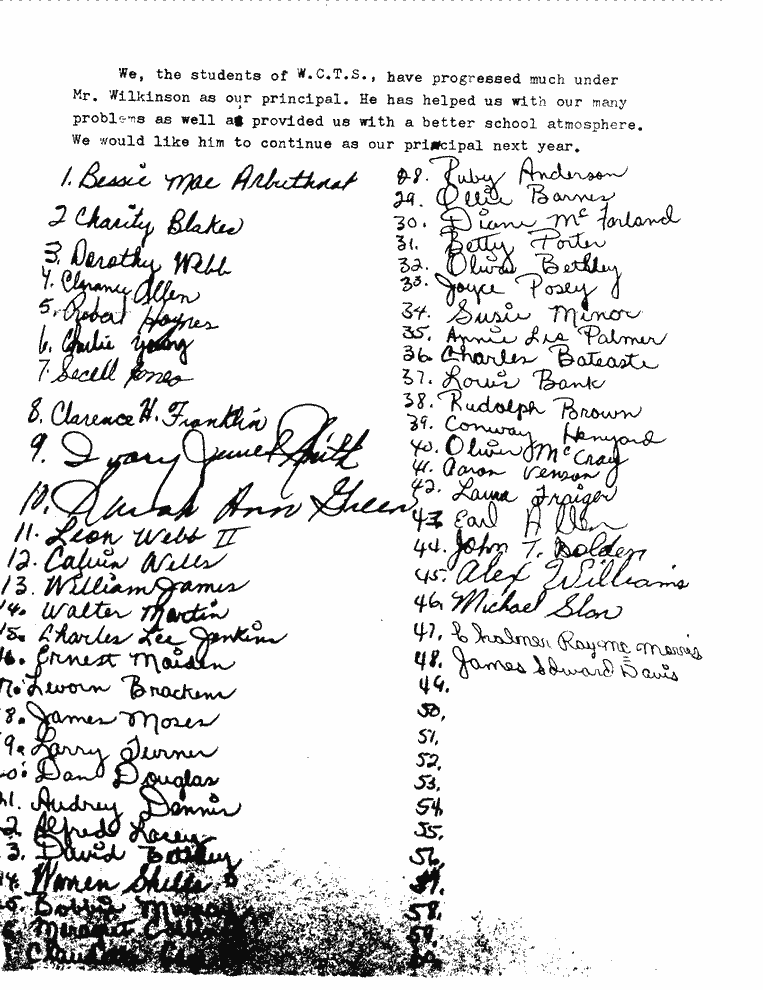 We, the students of W.C.T.S., have progressed much under
Mr. Wilkinson as our principal. He has helped us with our many
problems as well as provided us with a better school atmosphere.
We would like him to continue as our principal next year.
1. Bessie Mae Arbuthnot
2 Charity Blakes
3. Dorothy Webb
4. Clarance Allen
5. Robert Haynes
6. Charlie Young
7. Secell Jones
8. Clarence H. Franklin
9. Ivory James Smith
10. Sarah Ann Green
11. Leon Webb II
12. Calvin Wells
13. William James
14. Walter Martin
15. Charles Lee Jenkins
16. Ernest Maiden
17. Levorn Brackens
8. James Moses
9. Larry Turner
0. Dan Douglas
1. Audrey Dennis
2. Alfred Lacey
3. David Bethley
4. Women Skells
5. Bobbie
6. Margaret
28. Ruby Anderson
29. Ollie Barnes
30. Diane McFarland
31. Betty Porter
32. Olivia Bethley
33. Joyce Posey
34. Susie Minor
35. Annie Lis Palmer
36. Charles Bateaste
37. Louis Bank
38. Rudolph Brown
39. Conway Henyard
40. Oliver McCray
41. Aaron Venson
42. Laura Fraizer
43 Earl Allen
44. John T. Bolden
45. Alex Williams
46. Michael Slon
47. Chalmer Raymc Morris
48. James Edward Davis
49.
50.
51.
52.
53.
54.
55.
56.
57.
58.
59.
60.